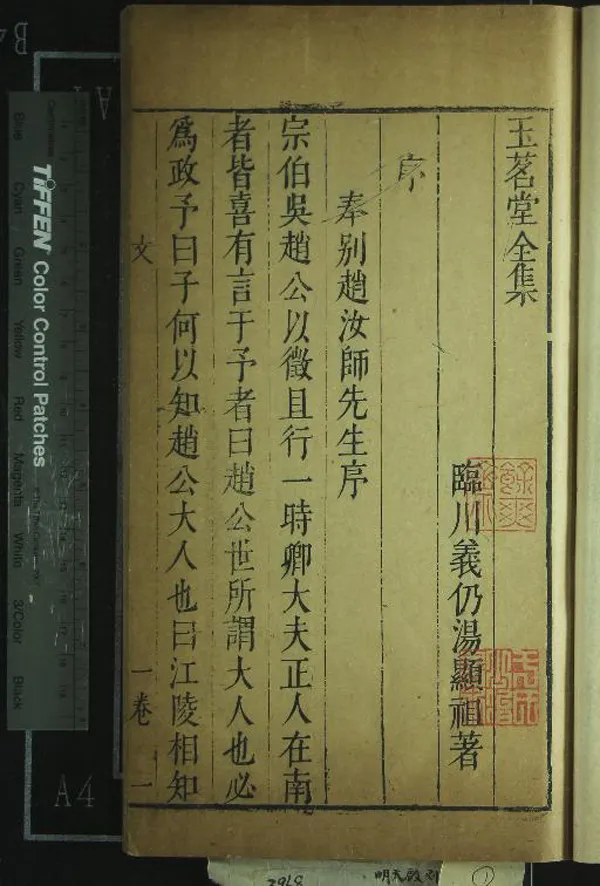 玉茗堂全集
臨川義仍湯顯祖著
序
奉别趙汝師先生序
宗伯吳趙公以徵且行一時卿大夫正人在南
者皆喜有言于予者曰趙公世所謂大人也必
爲政予曰子何以知趙公大人也曰江陵相知
文 一卷 一
TIFFEN Color Control Patches
Blue Cyan Green Yellow Red Magenta White 3/Color Black
A4